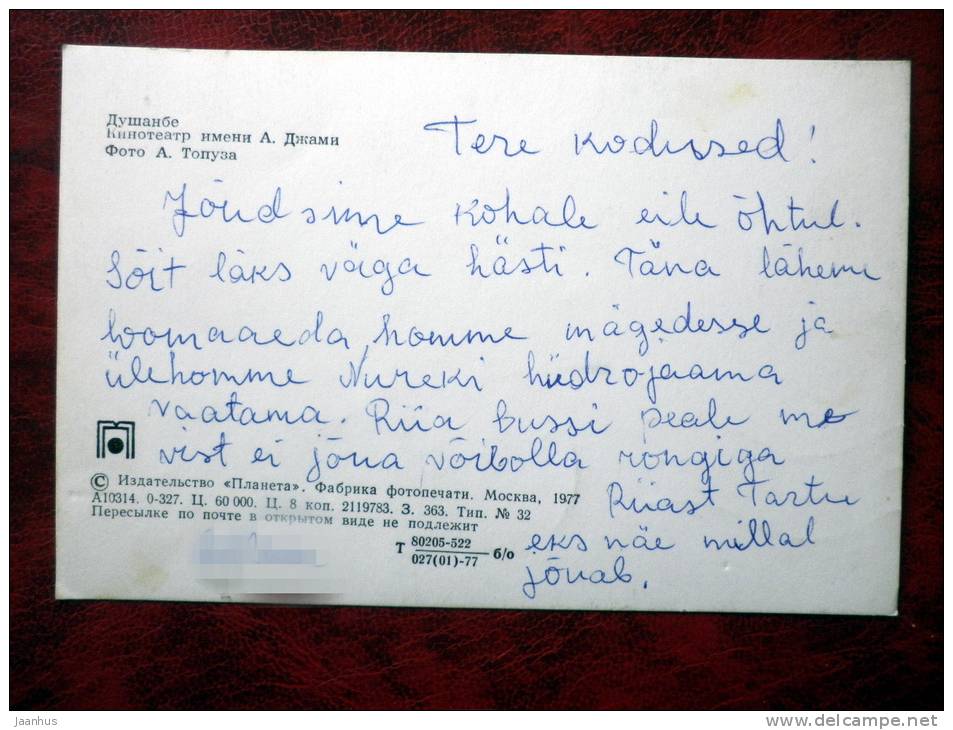 Душанбе
Кинотеатр имени А. Джами
Фото А. Топуза
Tere kodused!
Jõudsime kohale eile õhtul.
Sõit läks väga hästi. Täna läheme
loomaaeda, homme mägedesse ja
ülehomme Nureki hüdrojaama
vaatama. Riia bussi peale me
vist ei jõua võibolla rongiga
Riiast Tartu
eks näe millal
jõuab.
© Издательство «Планета». Фабрика фотопечати. Москва, 1977
А10314. 0-327. Ц. 60 000. Ц. 8 коп. 2119783. З. 363. Тип. № 32
Пересылке по почте в открытом виде не подлежит
Т 80205-522 б/о
027(01)-77
Jaanhus
www.delcampe.net